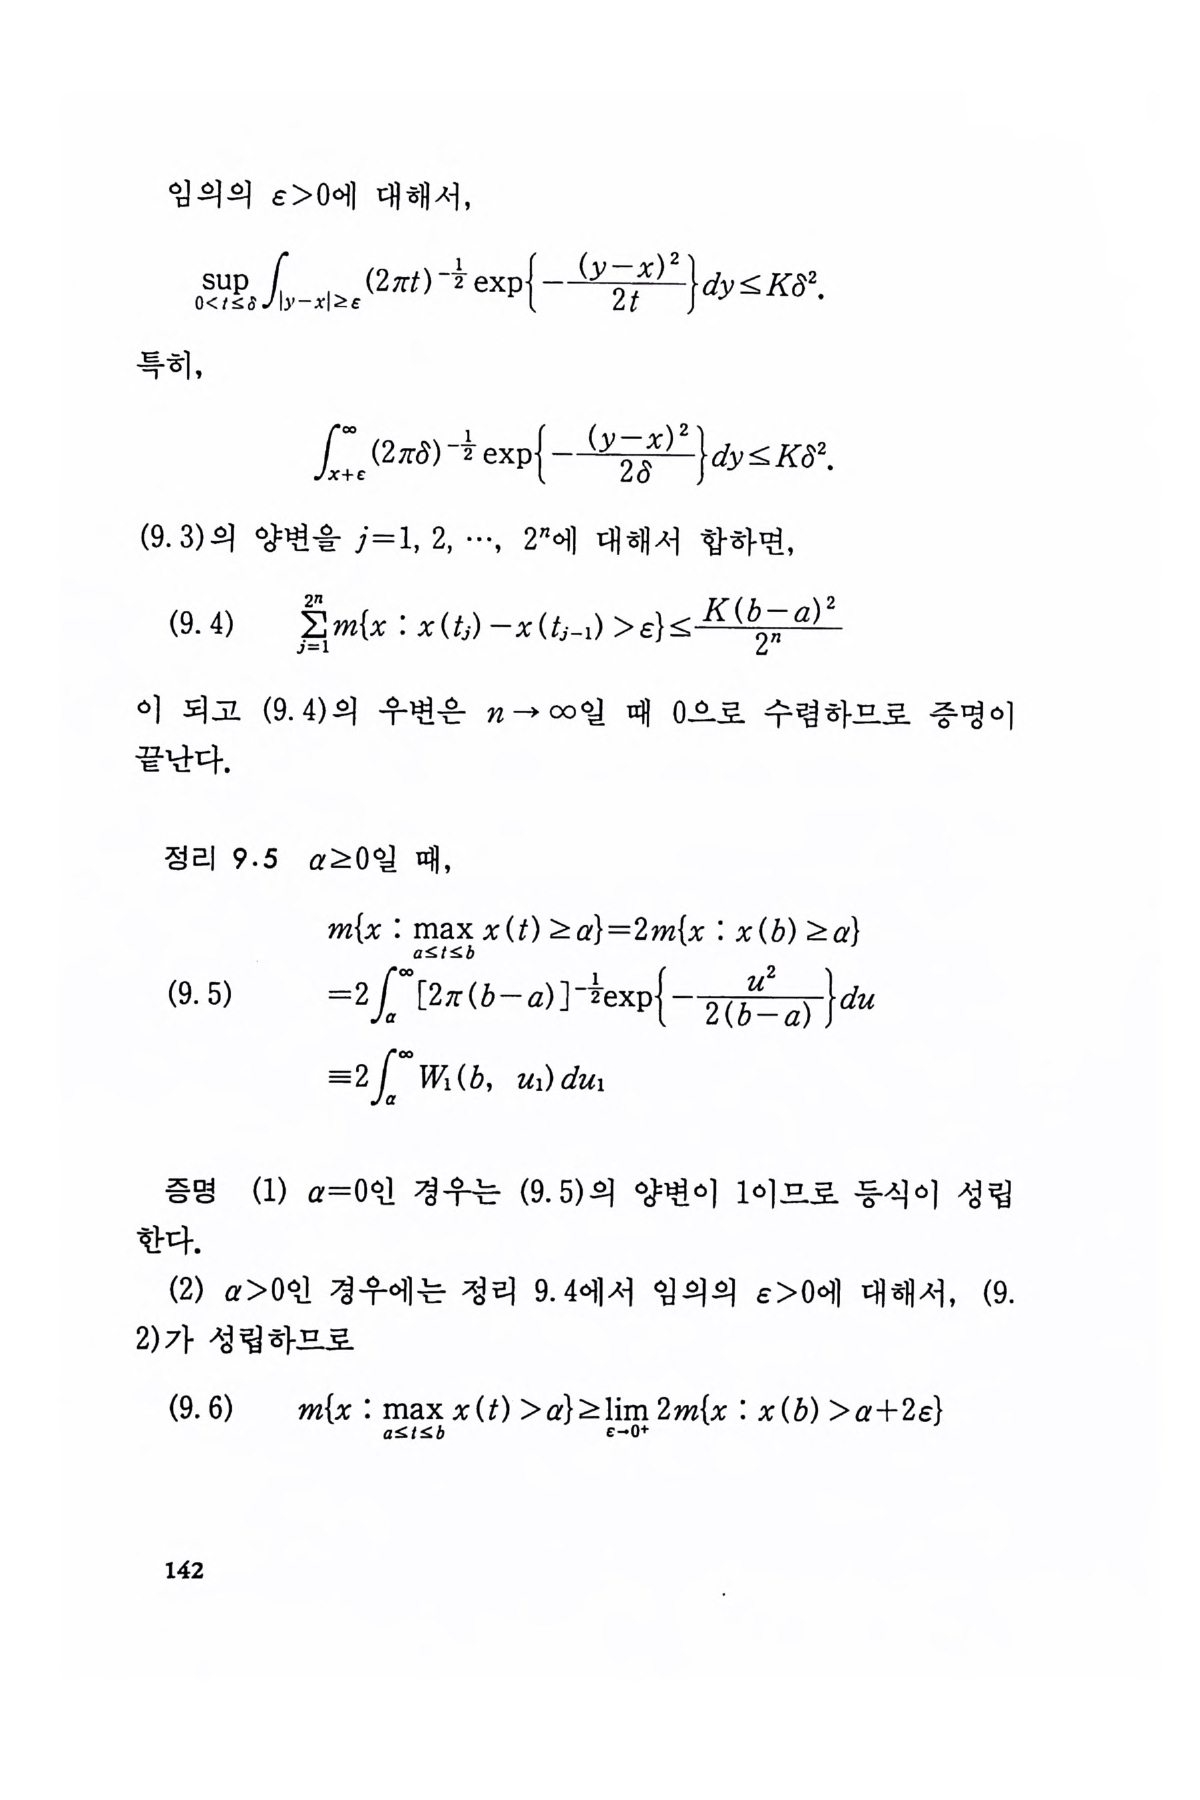 임의의 ε>0에 대해서,
sup_{0<t≤δ} ∫_{|y−x|≥ε} (2πt)^{−1/2} exp{−(y−x)²/2t}dy≤Kδ².
특히,
∫_{x+ε}^{∞} (2πδ)^{−1/2} exp{−(y−x)²/2δ}dy≤Kδ².
(9. 3)의 양변을 j=1, 2, ⋯, 2ⁿ에 대해서 합하면,
(9. 4) ∑_{j=1}^{2ⁿ} m{x : x(t_j)−x(t_{j−1})>ε}≤K(b−a)²/2ⁿ
이 되고 (9. 4)의 우변은 n→∞일 때 0으로 수렴하므로 증명이
끝난다.
정리 9.5 α≥0일 때,
m{x : max_{a≤t≤b} x(t)≥α}=2m{x : x(b)≥α}
(9. 5) =2∫_{α}^{∞} [2π(b−a)]^{−1/2}exp{−u²/2(b−a)}du
≡2∫_{α}^{∞} W₁(b, u₁)du₁
증명 (1) α=0인 경우는 (9. 5)의 양변이 1이므로 등식이 성립
한다.
(2) α>0인 경우에는 정리 9. 4에서 임의의 ε>0에 대해서, (9.
2)가 성립하므로
(9. 6) m{x : max_{a≤t≤b} x(t)>α}≥lim_{ε→0⁺} 2m{x : x(b)>α+2ε}
142